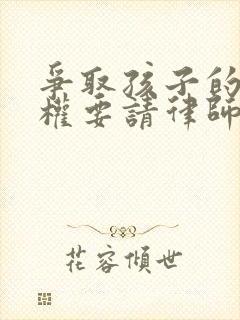 爭取孩子的
權要請律師
花容傾世